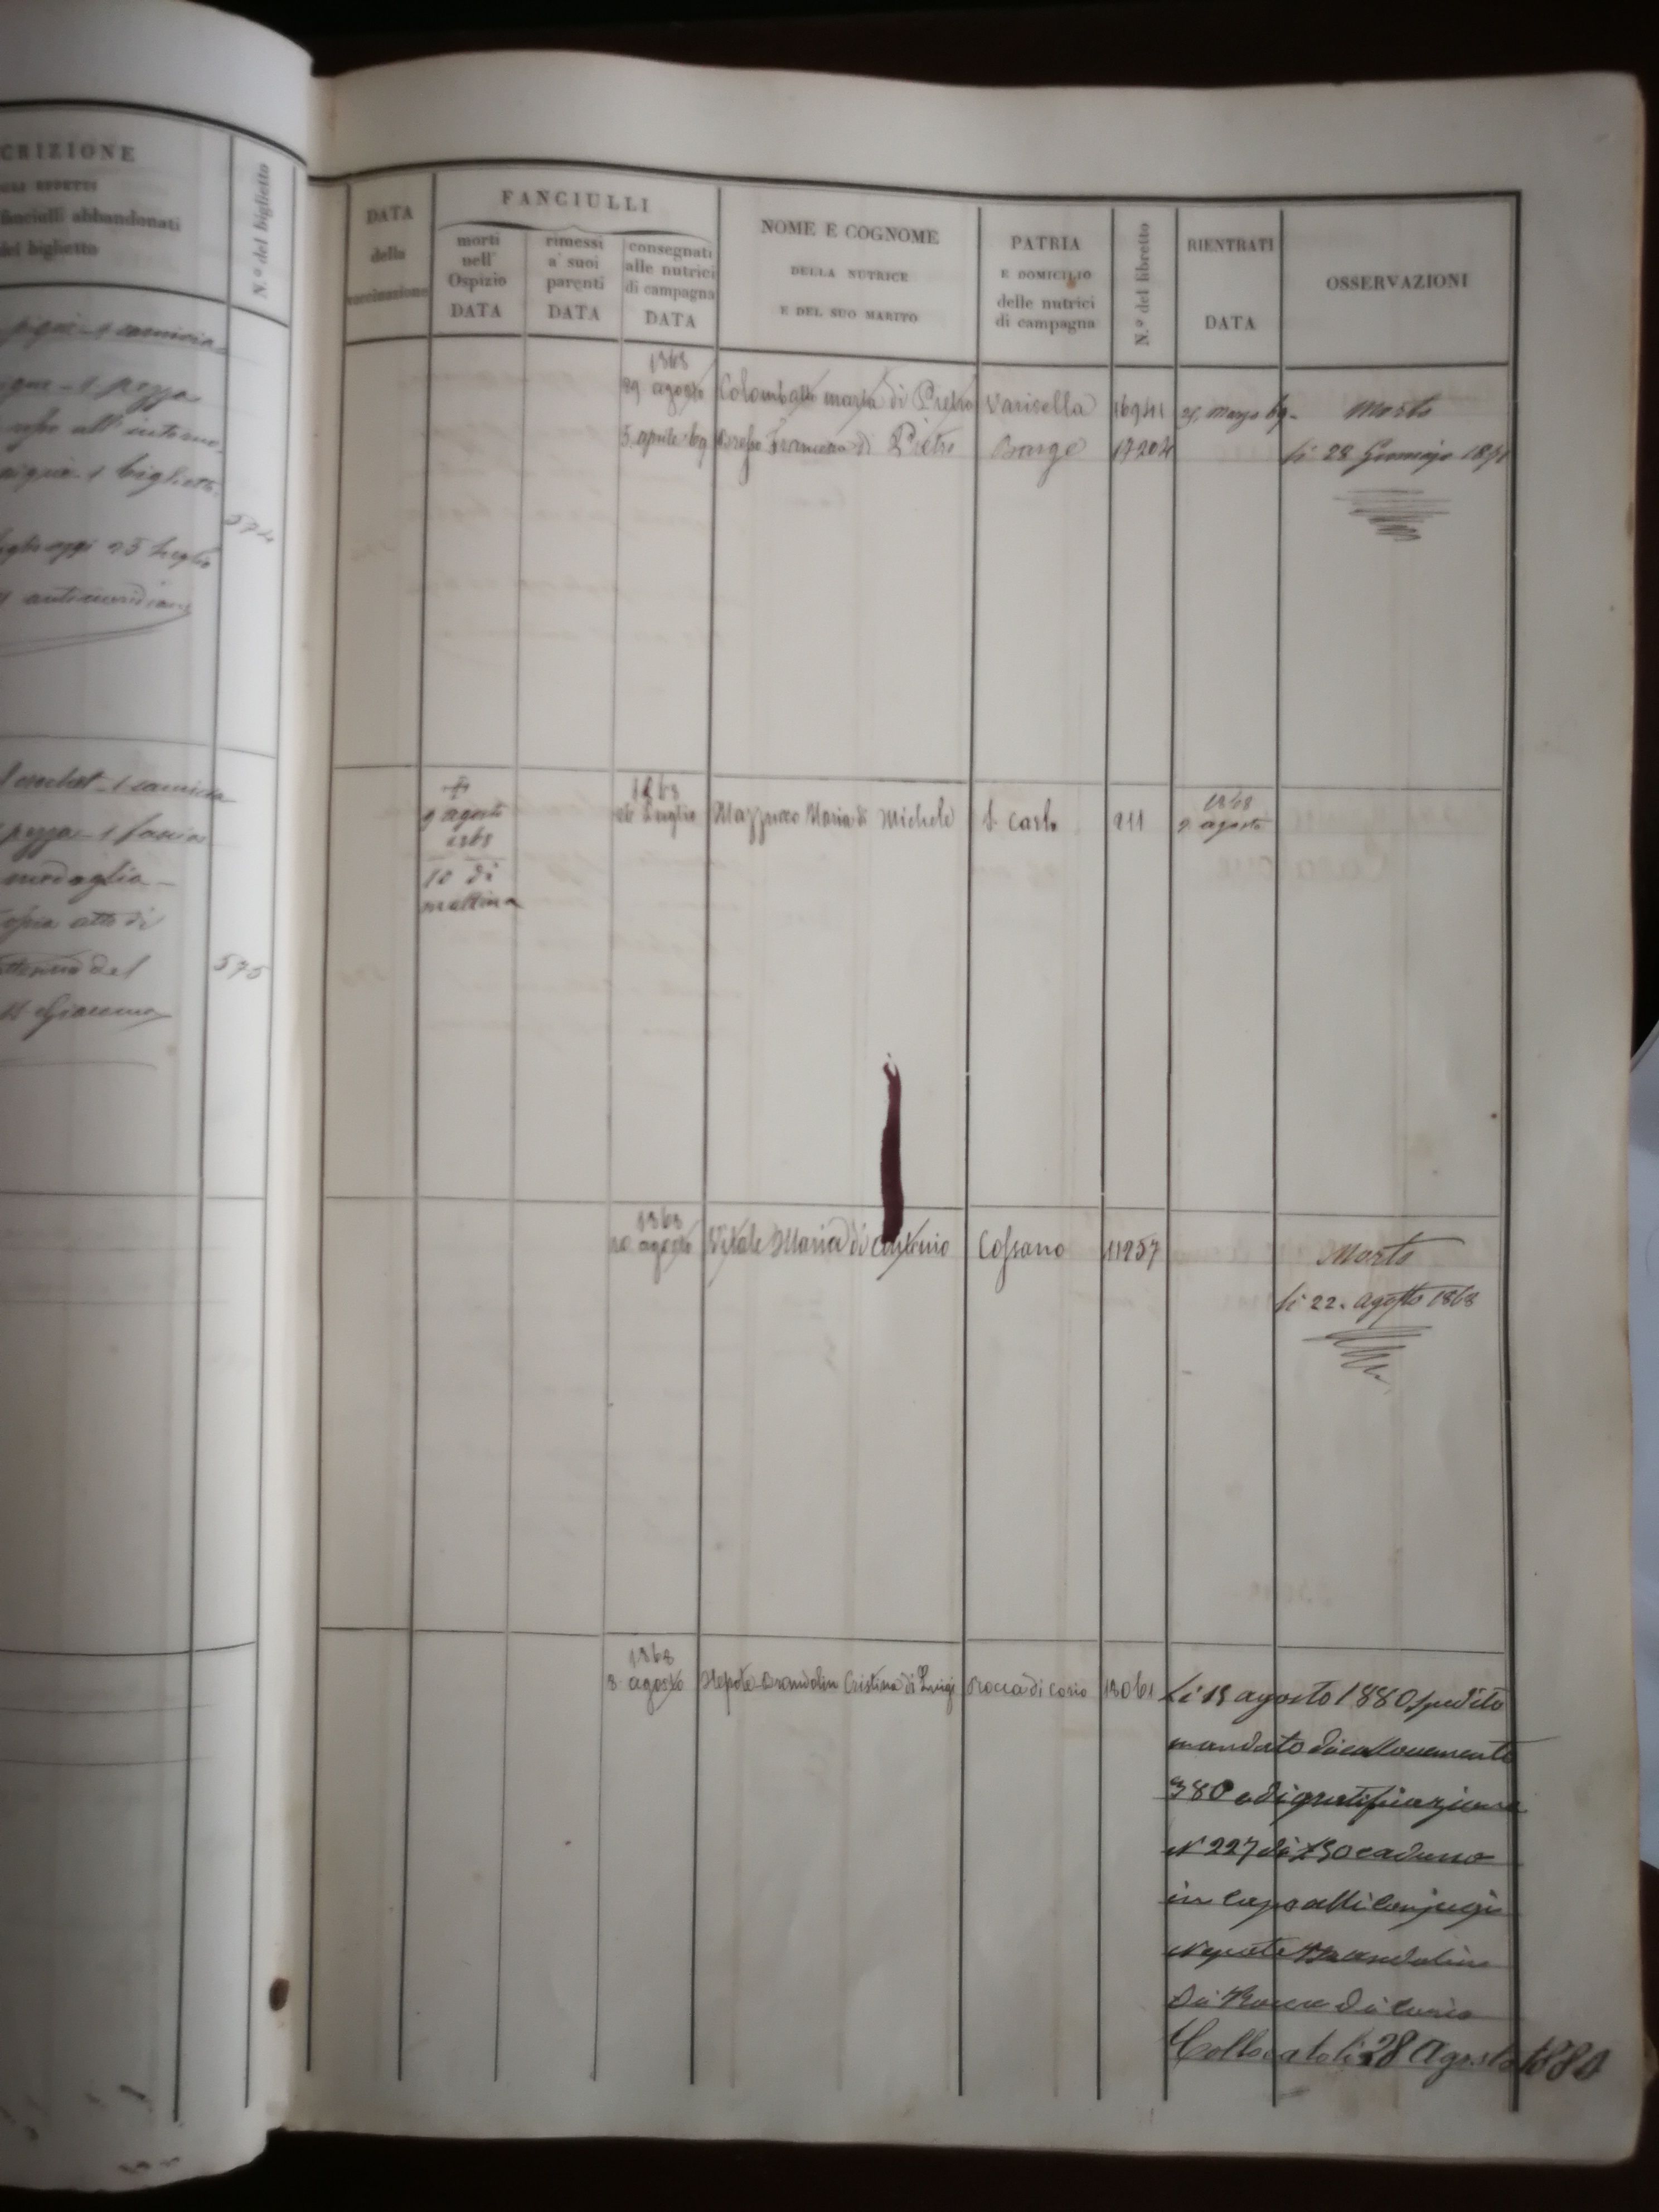 CRIZIONE
fanciulli abbandonati
del biglietto
N.º del biglietto
1 camicia
1 pezza
all'intorno
1 biglietto
574
oggi 25 Luglio
antimeridiane
1 camicia
pezza 1 fascia
medaglia
copia atto di
del
575
Giacomo
DATA
della
vaccinazione
FANCIULLI
morti
nell'
Ospizio
DATA
rimessi
a' suoi
parenti
DATA
consegnati
alle nutrici
di campagna
DATA
NOME E COGNOME
DELLA NUTRICE
E DEL SUO MARITO
PATRIA
E DOMICILIO
delle nutrici
di campagna
N.º del libretto
RIENTRATI
DATA
OSSERVAZIONI
1868
29 agosto Colombatto maria di Pietro Varisella 16941 25 marzo 69 Morto
5 aprile 69 Francesca di Pietro Barge 17204 li 28 Gennajo 1871
+
9 agosto
1868
10 di
mattina
1868
26 Luglio Mazzucco Maria di Michele S. Carlo 211
1868
9 agosto
1868
20 agosto Vitale Maria di Antonio Cossano 11257 Morto
li 22. agosto 1868
1868
8 agosto Nepote Brandolin Cristina di Luigi Rocca di Corio 13061
Li 13 agosto 1880 spedito
mandato di collocamento
380 e di gratificazione
N 227 di £50 caduno
in capo alli conjugi
Nepote Brandolin
di Rocca di Corio
Collocato li 28 Agosto 1880